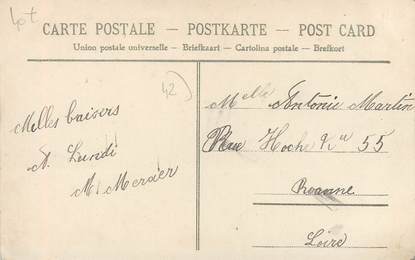 lot
CARTE POSTALE – POSTKARTE – POST CARD
Union postale universelle – Briefkaart – Cartolina postale – Brefkort
42
Milles baisers
A. Lundi
M. Mercier
Melle Antonie Martin
Rue Hoche No 55
Roanne
Loire